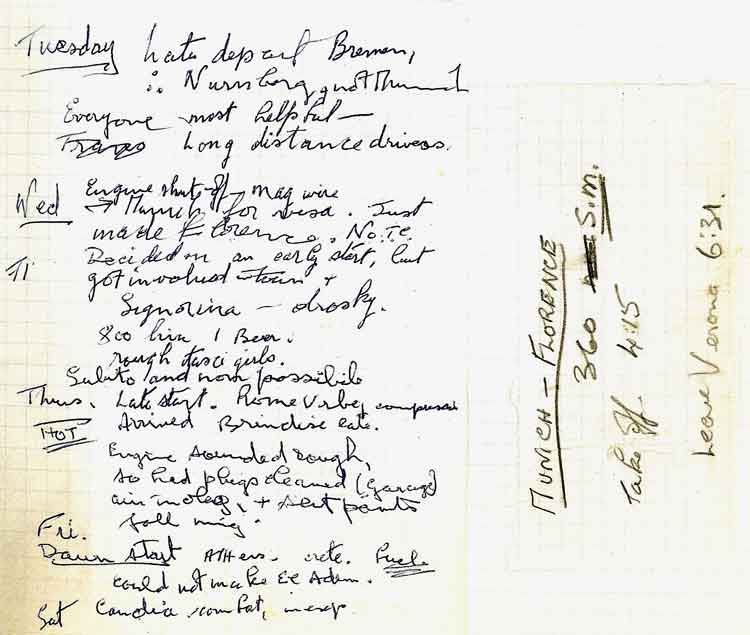 Tuesday Late depart Bremen,
∴ Nurnberg not Munich
Everyone most helpful —
Long distance drivers.
Wed Engine shut-off mag wire
→ Munich for visa. Just
made Florence. No.
Decided on an early start, but
got involved town +
Signorina — drosky.
800 lira 1 Beer.
rough girls.
Subito and non possibile
Thurs. Late start. Rome Urbe,
HOT Arrived Brindise late.
Engine sounded rough,
so had plugs cleaned (garage)
+ set points
Fri.
Dawn start Athens. crete. Fuel.
could not make El Adem.
Sat Candia
MUNICH – FLORENCE
360 S.M.
Take off 4:15
Leave Verona 6:31.